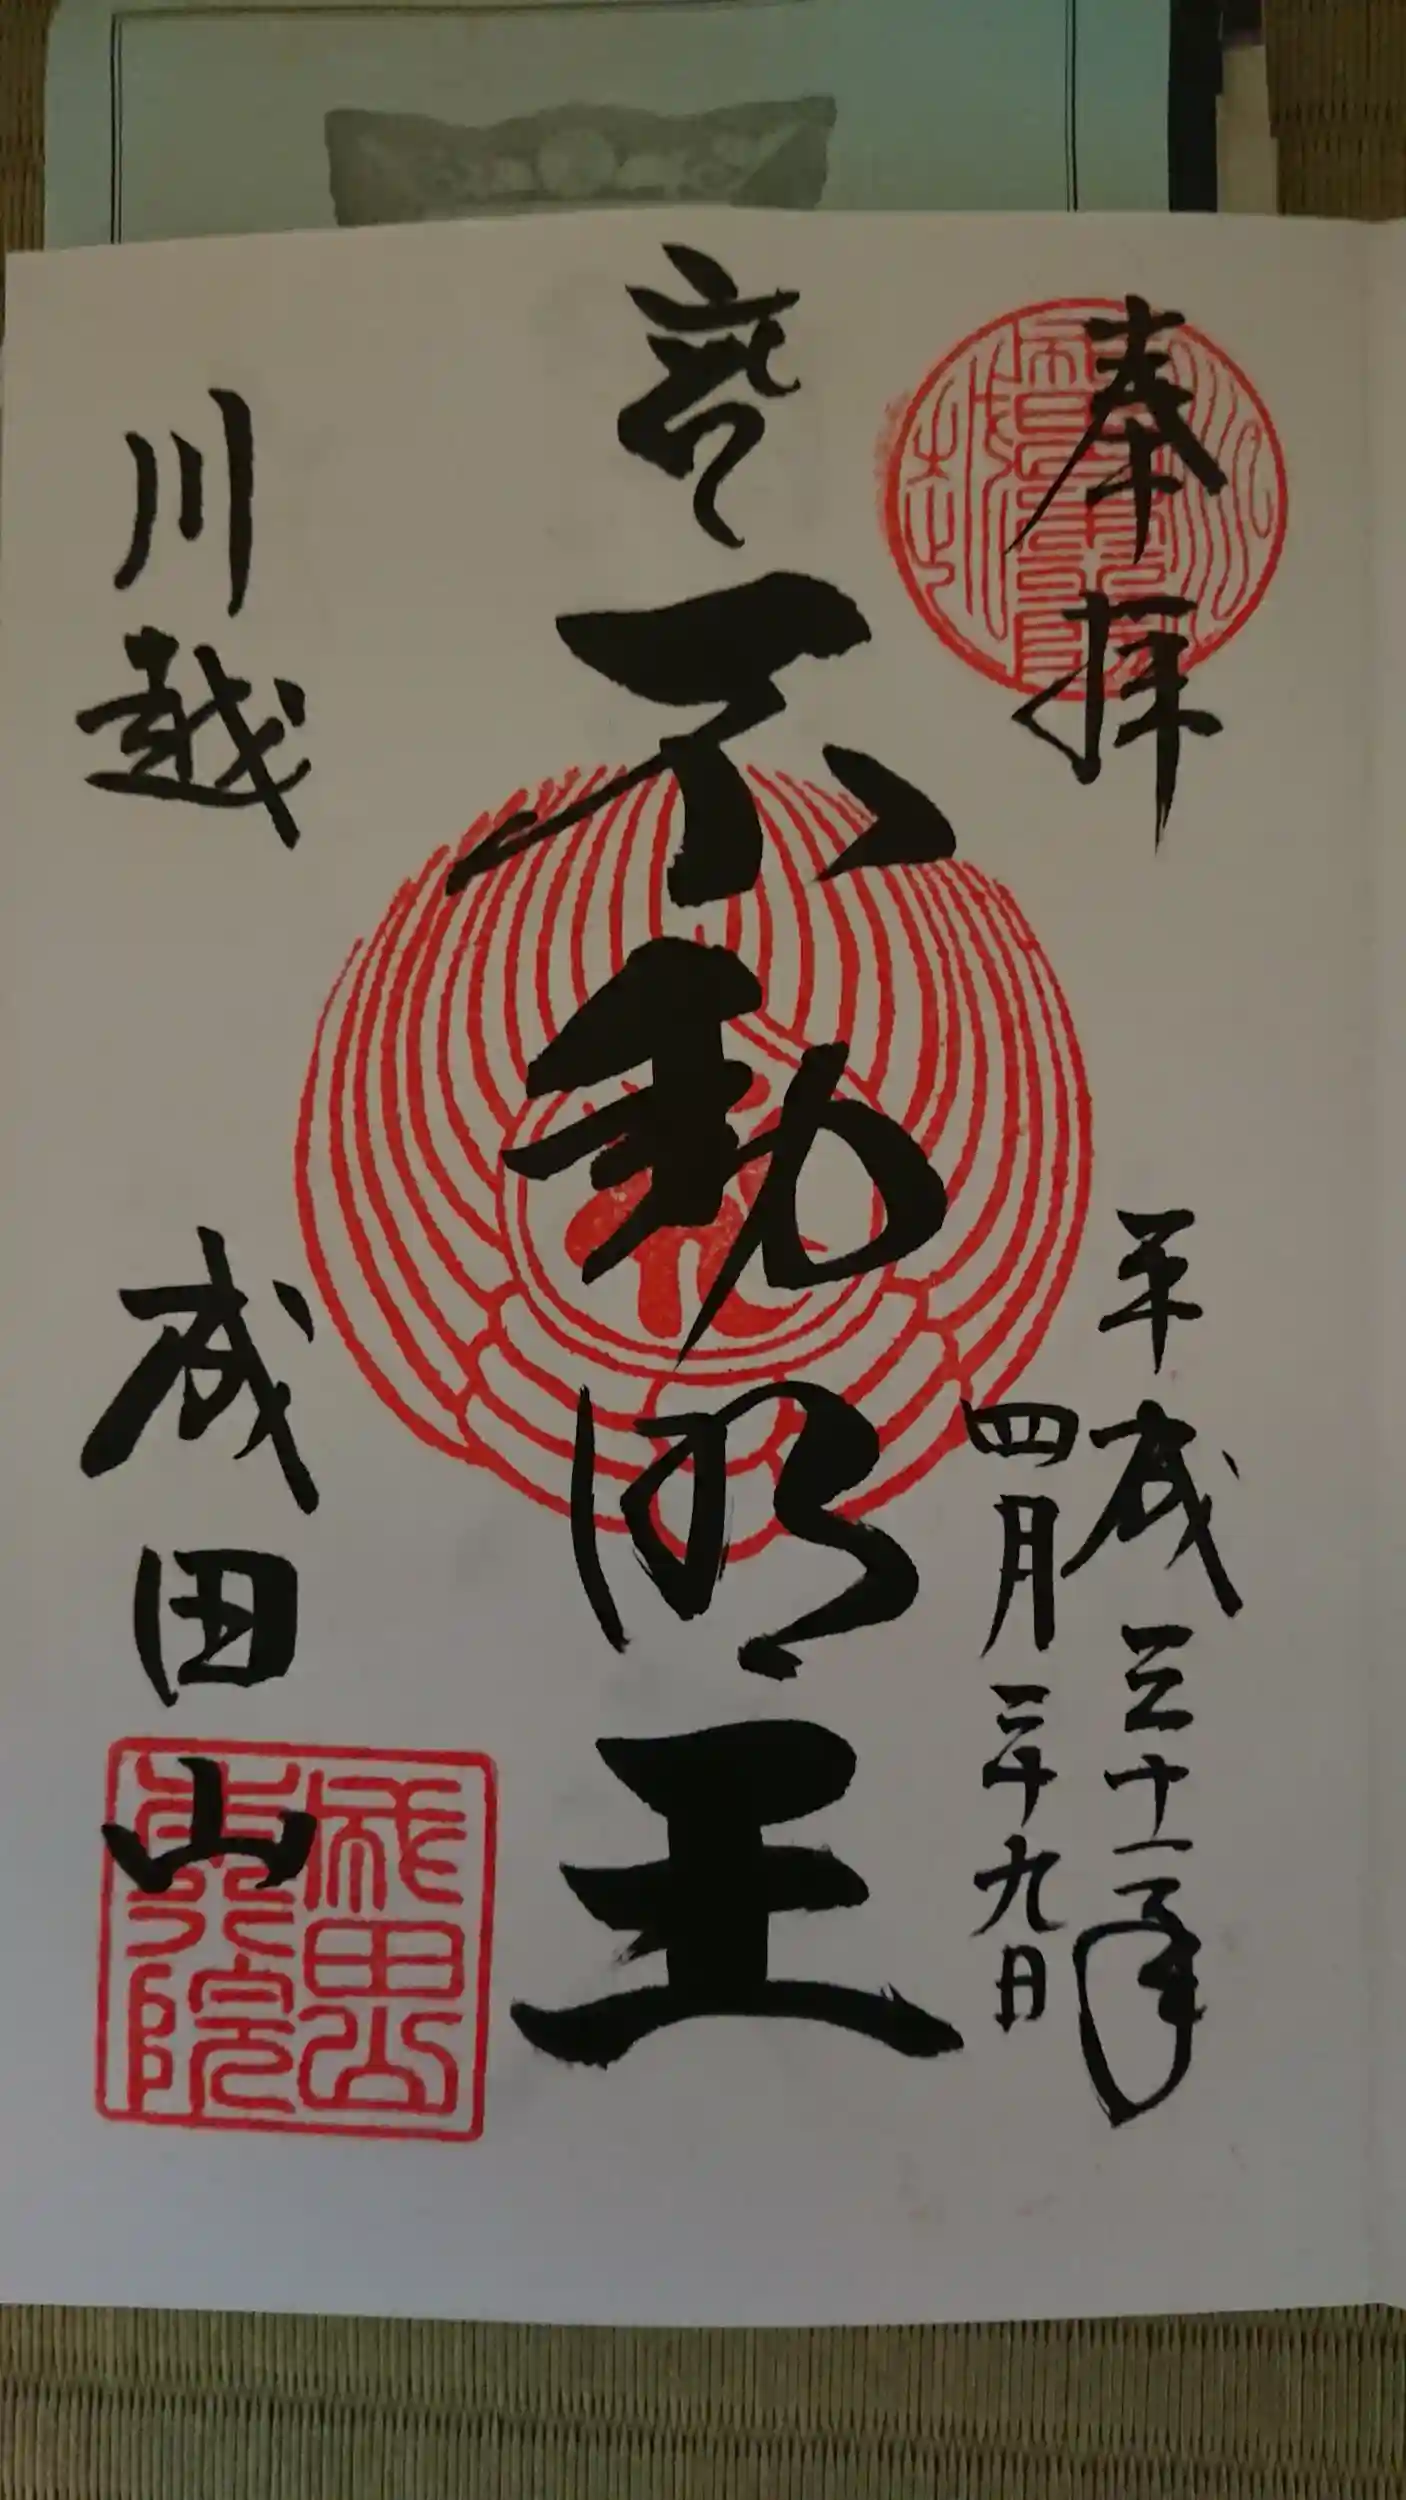 奉拝
平成三十一年
四月二十九日
不動明王
川越
成田山
成田山
本行院